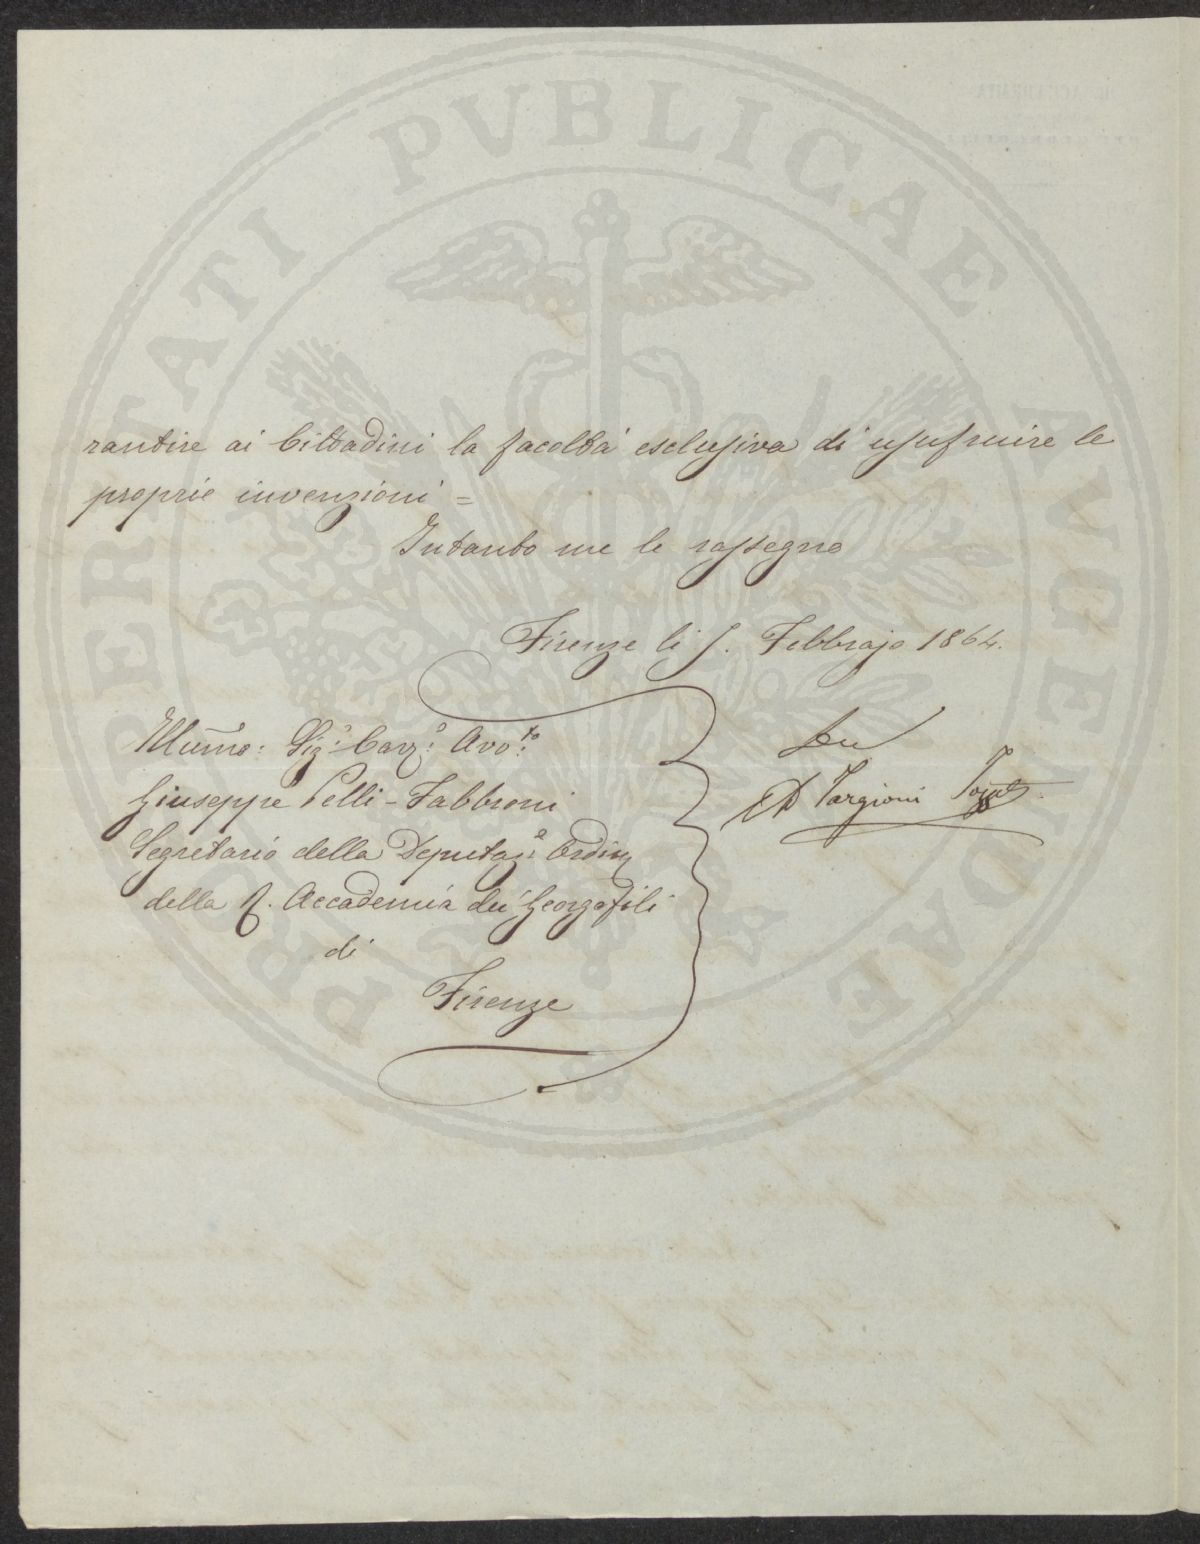 PROSPERITATI PUBLICAE AUGENDAE
rantire ai Cittadini la facoltà esclusiva di usufruire le
proprie invenzioni =
Intanto me le rassegno
Firenze li 5. Febbrajo 1864.
Illumo: Sigr: Cavo: Avoto:
Giuseppe Pelli-Fabbroni
Segretario della Deputaze: Ordina
della R. Accademia dei Georgofili
di
Firenze
Targioni